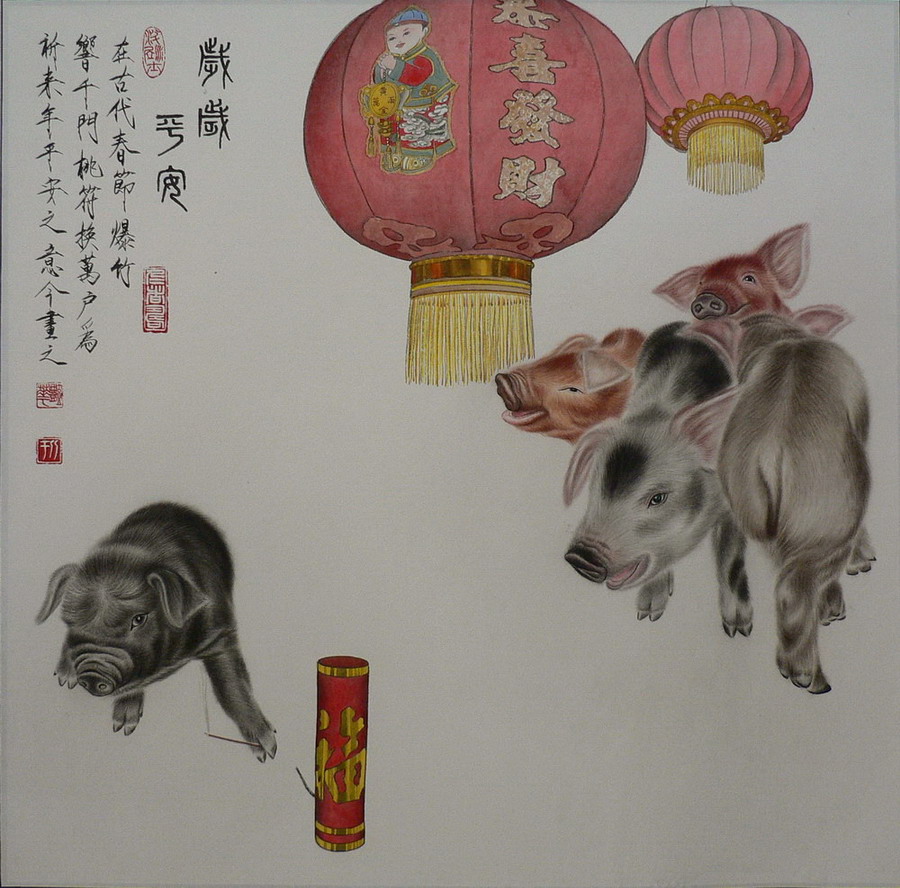 歲歲
平安
在古代春節爆竹
響千門桃符換萬户爲
祈來年平安之意今畫之
恭喜發財
福